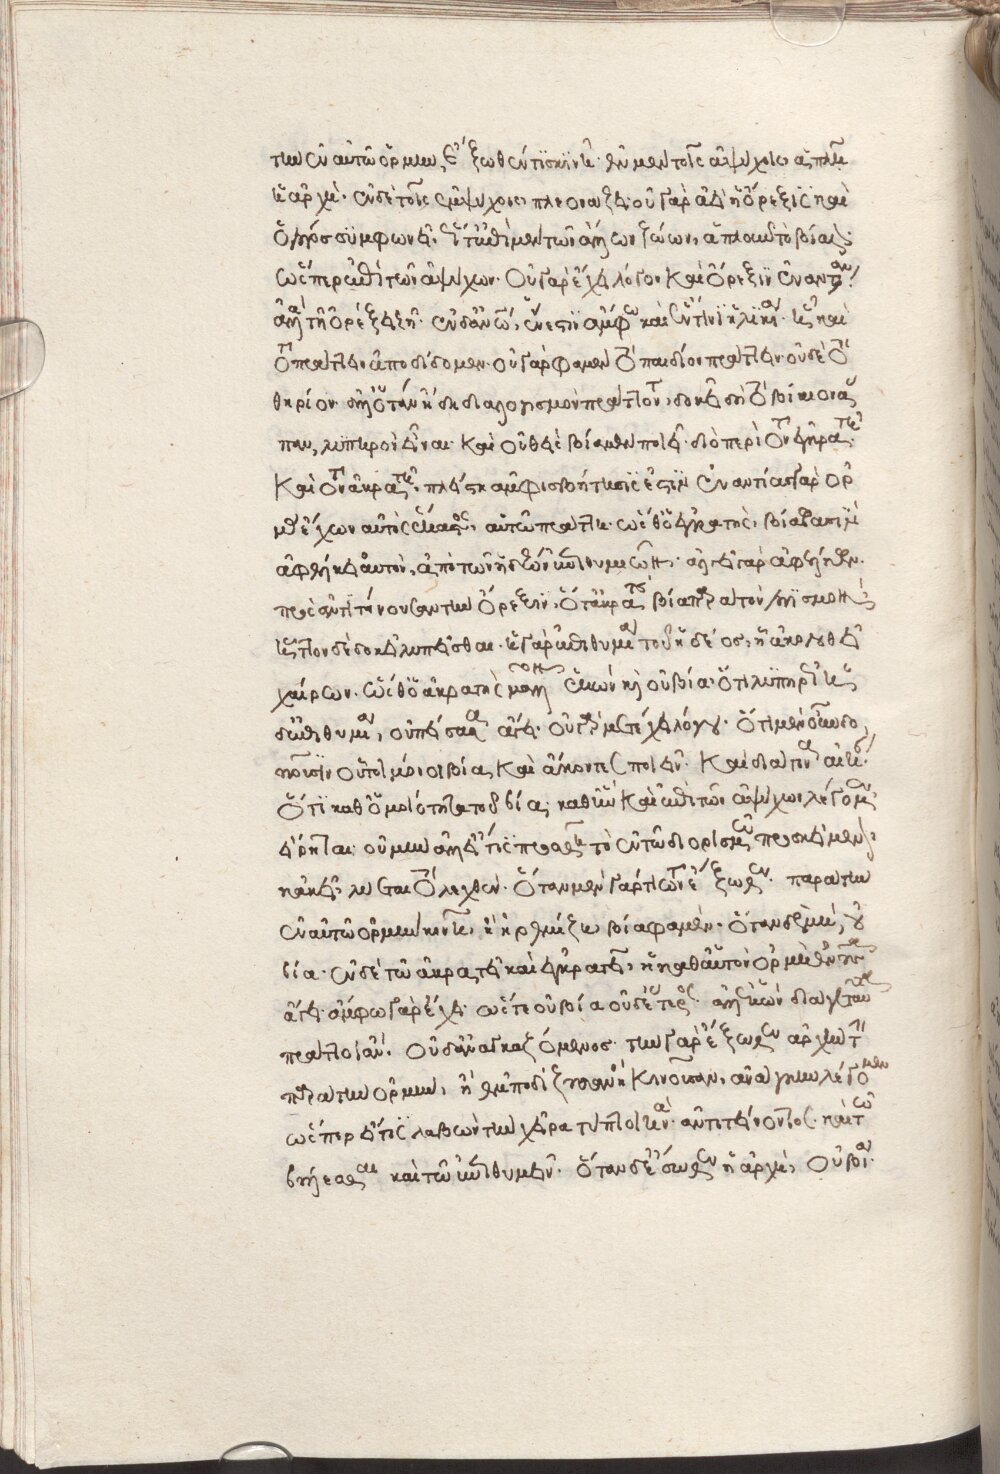 την ἐν αὐτῶ ὁρμὴν, ἔξωθέν τι κινῆ· ἐν μὲν τοῖς ἀψύχοις ἁπλῆ
ἡ ἀρχὴ· ἐν δὲ τοῖς ἐμψύχοις πλεονάζει· οὐ γὰρ ἀεὶ ἡ ὄρεξις καὶ
ὁ λόγος συμφωνεῖ· ὥστ' ἐπὶ μὲν τῶν ἄλλων ζώων, ἁπλοῦν τὸ βίαιον·
ὥσπερ ἐπὶ τῶν ἀψύχων· οὐ γὰρ ἔχει λόγον καὶ ὄρεξιν ἐναντίαν·
ἀλλὰ τῆ ὀρέξει ζῆ· ἐν δ' ἀνθρώπω, ἔνεστιν ἄμφω καὶ ἔν τινι ἡλικία· ἧ καὶ
τὸ πράττειν ἀποδίδομεν· οὐ γάρ φαμεν τὸ παιδίον πράττειν· οὐδὲ τὸ
θηρίον· ἀλλ' ὅταν ἤδη διαλογισμὸν πράττοντα· δοκεῖ δὴ τὸ βίαιον ἅ
παν, λυπηρὸν εἶναι· καὶ οὐθεὶς βία μὲν ποιεῖ· διὸ περὶ τὸν ἐγκρατῆ·
καὶ τὸν ἀκρατῆ, πλείστη ἀμφισβήτησίς ἐστιν· ἐναντίας γὰρ ὁρ
μὰς ἔχων αὐτὸς ἕκαστος, αὑτῶ πράττει· ὥσθ' ὁ ἐγκρατὴς, βία φασὶν
ἀφέλκει αὑτὸν, ἀπὸ τῶν ἡδέων ἐπιθυμιῶν· ἀλγεῖ γὰρ ἀφέλκων
πρὸς ἀντιτείνουσαν τὴν ὄρεξιν, ὁ δ' ἀκρατὴς βία παρὰ τὸν λογισμὸν
ἧττον δὲ δοκεῖ λυπεῖσθαι· ἡ γὰρ ἐπιθυμία τοῦ ἡδέος, ἧ ἀκολουθεῖ
χαίρων· ὥσθ' ὁ ἀκρατὴς μᾶλλον ἑκὼν καὶ οὐ βία· ὅτι λυπηρῶς ἡ
δ' ἐπιθυμία, οὐ πείσασα ἄγει· οὐ γὰρ μετέχει λόγου· ὅτι μὲν οὖν δο
κοῦσιν οὗτοι μόνοι βία καὶ ἄκοντες ποιεῖν· καὶ διὰ τίν' αἰτίαν·
ὅτι καθ' ὁμοιότητα τοῦ βία, καθ' ἣν καὶ ἐπὶ τῶν ἀψύχων λέγομεν·
εἴρηται· οὐ μὴν ἀλλ' εἴ τις προσθῆ τὸ ἐν τῶ διορισμῶ προσκείμενον,
κἀκεῖ, λύεται τὸ λεχθέν· ὅταν μὲν γάρ τι τῶν ἔξωθεν παρὰ τὴν
ἐν αὐτῶ ὁρμὴν κινῆ, ἢ ἠρεμίζη, βία φαμὲν· ὅταν δὲ μὴ, οὐ
βία· ἐν δὲ τῶ ἀκρατεῖ καὶ ἐγκρατεῖ, ἡ καθ' αὑτὸν ὁρμὴ ἐνοῦσα
ἄγει· ἄμφω γὰρ ἔχει· ὥστε οὐ βία οὐδέτερος· ἀλλ' ἑκὼν διά γε ταῦτα
πράττοι ἂν· οὐδ' ἀναγκαζόμενος· τὴν γὰρ ἔξωθεν ἀρχὴν τὴν
παρὰ τὴν ὁρμὴν, ἢ ἐμποδίζουσαν ἢ κινοῦσαν, ἀνάγκην λέγομεν
ὥσπερ εἴ τις λαβὼν τὴν χεῖρα τύπτοι τινὰ· ἀντιτείνοντος καὶ τῶ
βούλεσθαι καὶ τῶ ἐπιθυμεῖν· ὅταν δ' ἔσωθεν ἡ ἀρχὴ, οὐ βία·